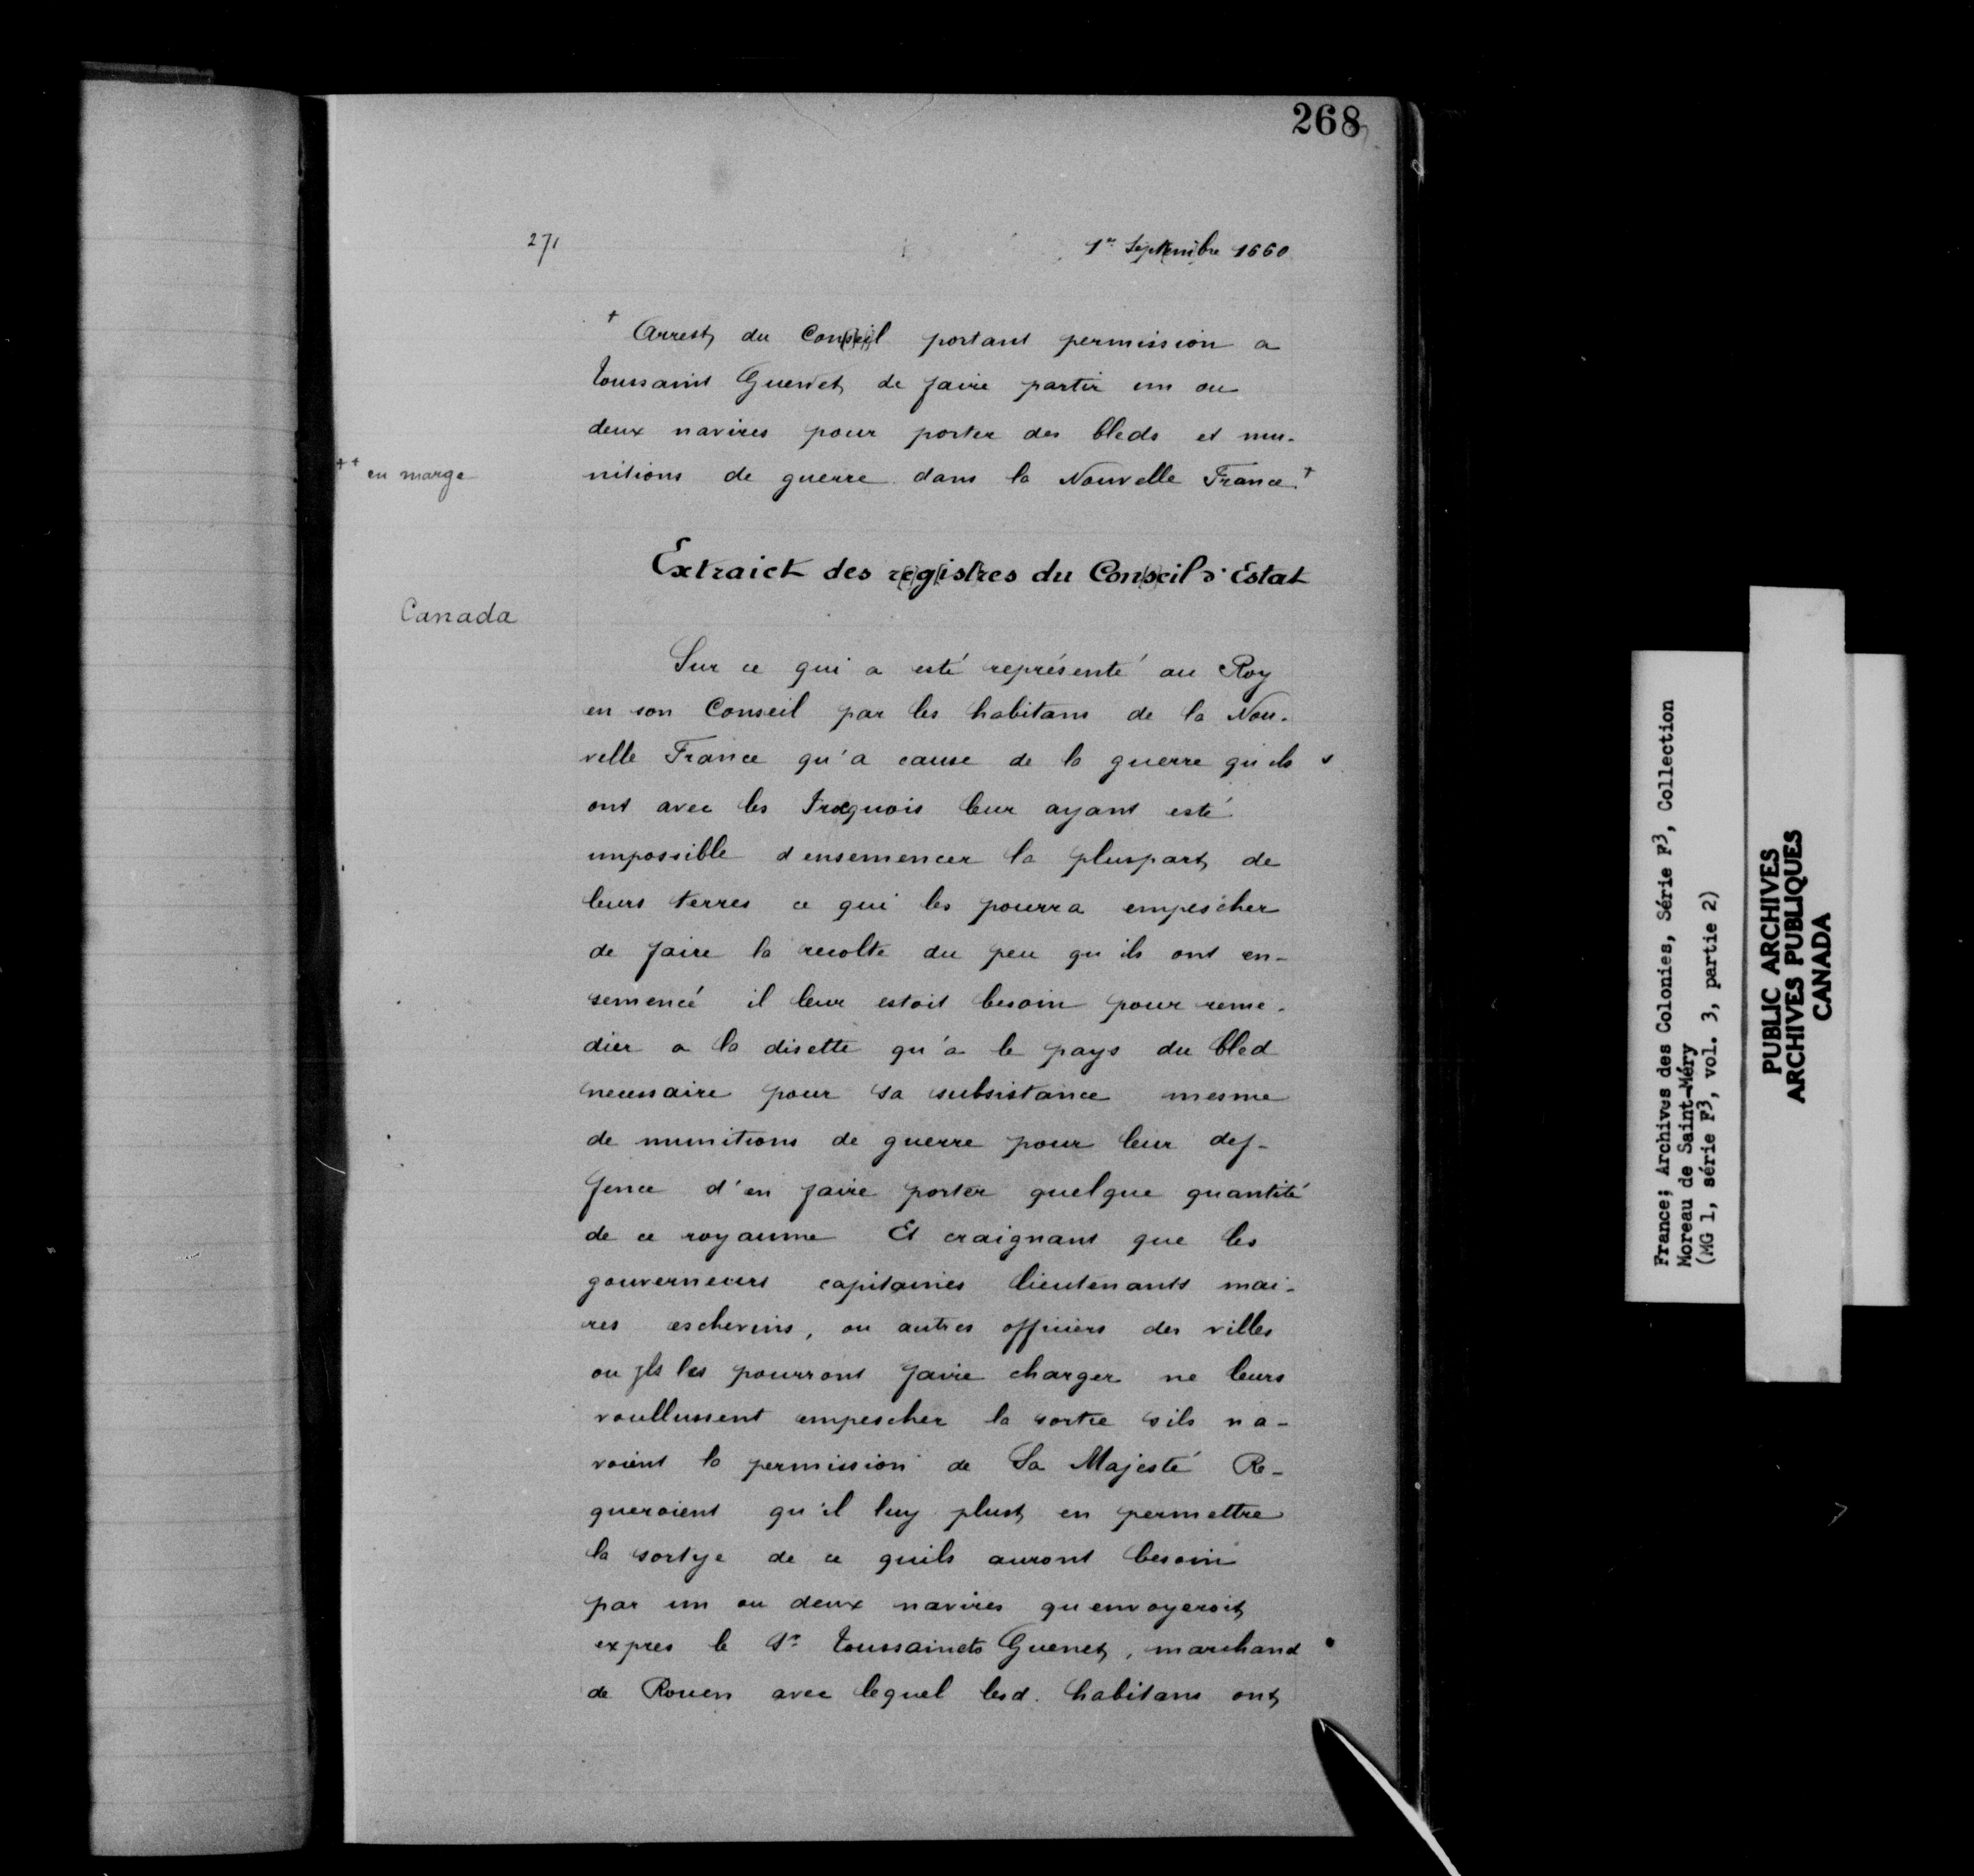 268
271
1er Septembre 1660
+ Arrest du Conseil portant permission a
Toussaint Guenet de faire partir un ou
deux navires pour porter des bleds et mu-
++ en marge
nitions de guerre dans la Nouvelle France. +
Extraict des registres du Conseil d'Estat
Canada
Sur ce qui a esté représenté au Roy
en son Conseil par les habitans de la Nou-
velle France qu'a cause de la guerre qu'ils
ont avec les Iroquois leur ayant esté
impossible d'ensemencer la pluspart de
leurs terres ce qui les pourra empescher
de faire la recolte du peu qu'ils ont en-
semencé il leur estoit besoin pour reme-
dier a la disette qu'a le pays du bled
necessaire pour sa subsistance mesme
de munitions de guerre pour leur def-
fence d'en faire porter quelque quantité
de ce royaume Et craignant que les
gouverneurs capitaines lieutenants mai-
res eschevins, ou autres officiers des villes
ou ils les pourront faire charger ne leurs
voullussent empescher la sortie s'ils n'a-
voient la permission de Sa Majesté Re-
queroient qu'il luy plust en permettre
la sortye de ce quils auront besoin
par un ou deux navires qu'envoyeroit
expres le Sr Toussaincts Guenet, marchand
de Rouen avec lequel lesd. habitans ont
France; Archives des Colonies, Série F3, Collection
Moreau de Saint-Méry
(MG 1, série F3, vol. 3, partie 2)
PUBLIC ARCHIVES
ARCHIVES PUBLIQUES
CANADA